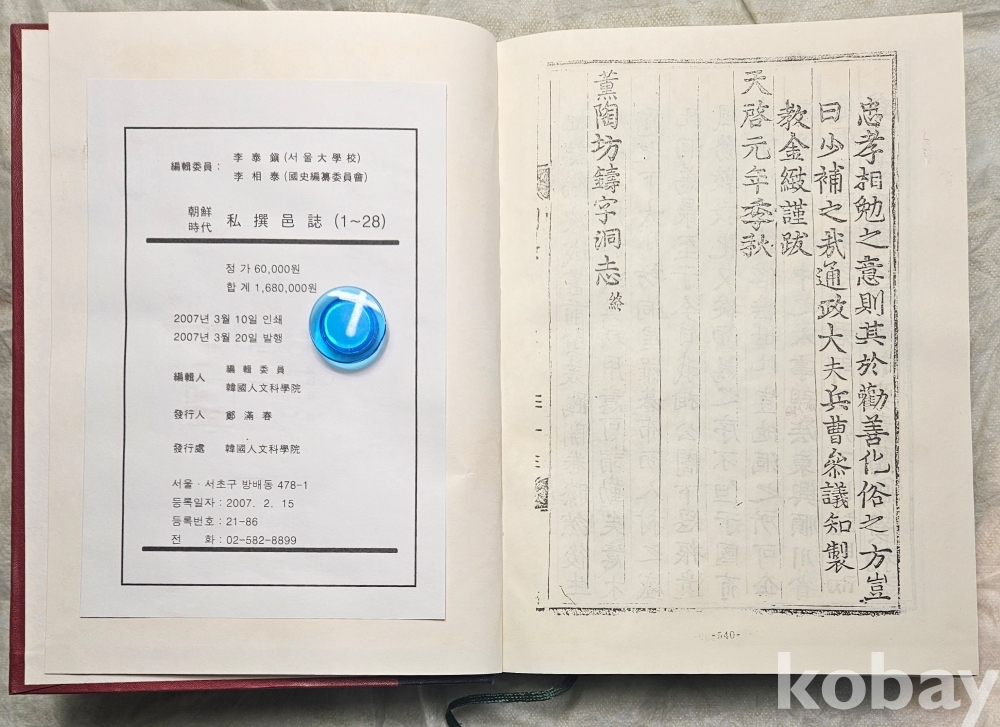 編輯委員 :
李 泰 鎭 (서 울 大 學 校)
李 相 泰 (國史編纂委員會)
朝鮮
時代
私 撰 邑 誌 (1~28)
정 가 60,000원
합 계 1,680,000원
2007년 3월 10일 인쇄
2007년 3월 20일 발행
編輯人
編 輯 委 員
韓國人文科學院
發行人 鄭 滿 春
發行處 韓國人文科學院
서울 · 서초구 방배동 478-1
등록일자 : 2007. 2. 15
등록번호 : 21-86
전 화 : 02-582-8899
忠孝相勉之意則其於勸善化俗之方豈
曰少補之哉通政大夫兵曹參議知製
教金緻謹跋
天啓元年季秋
薰陶坊鑄字洞志 終
-540-
kobay